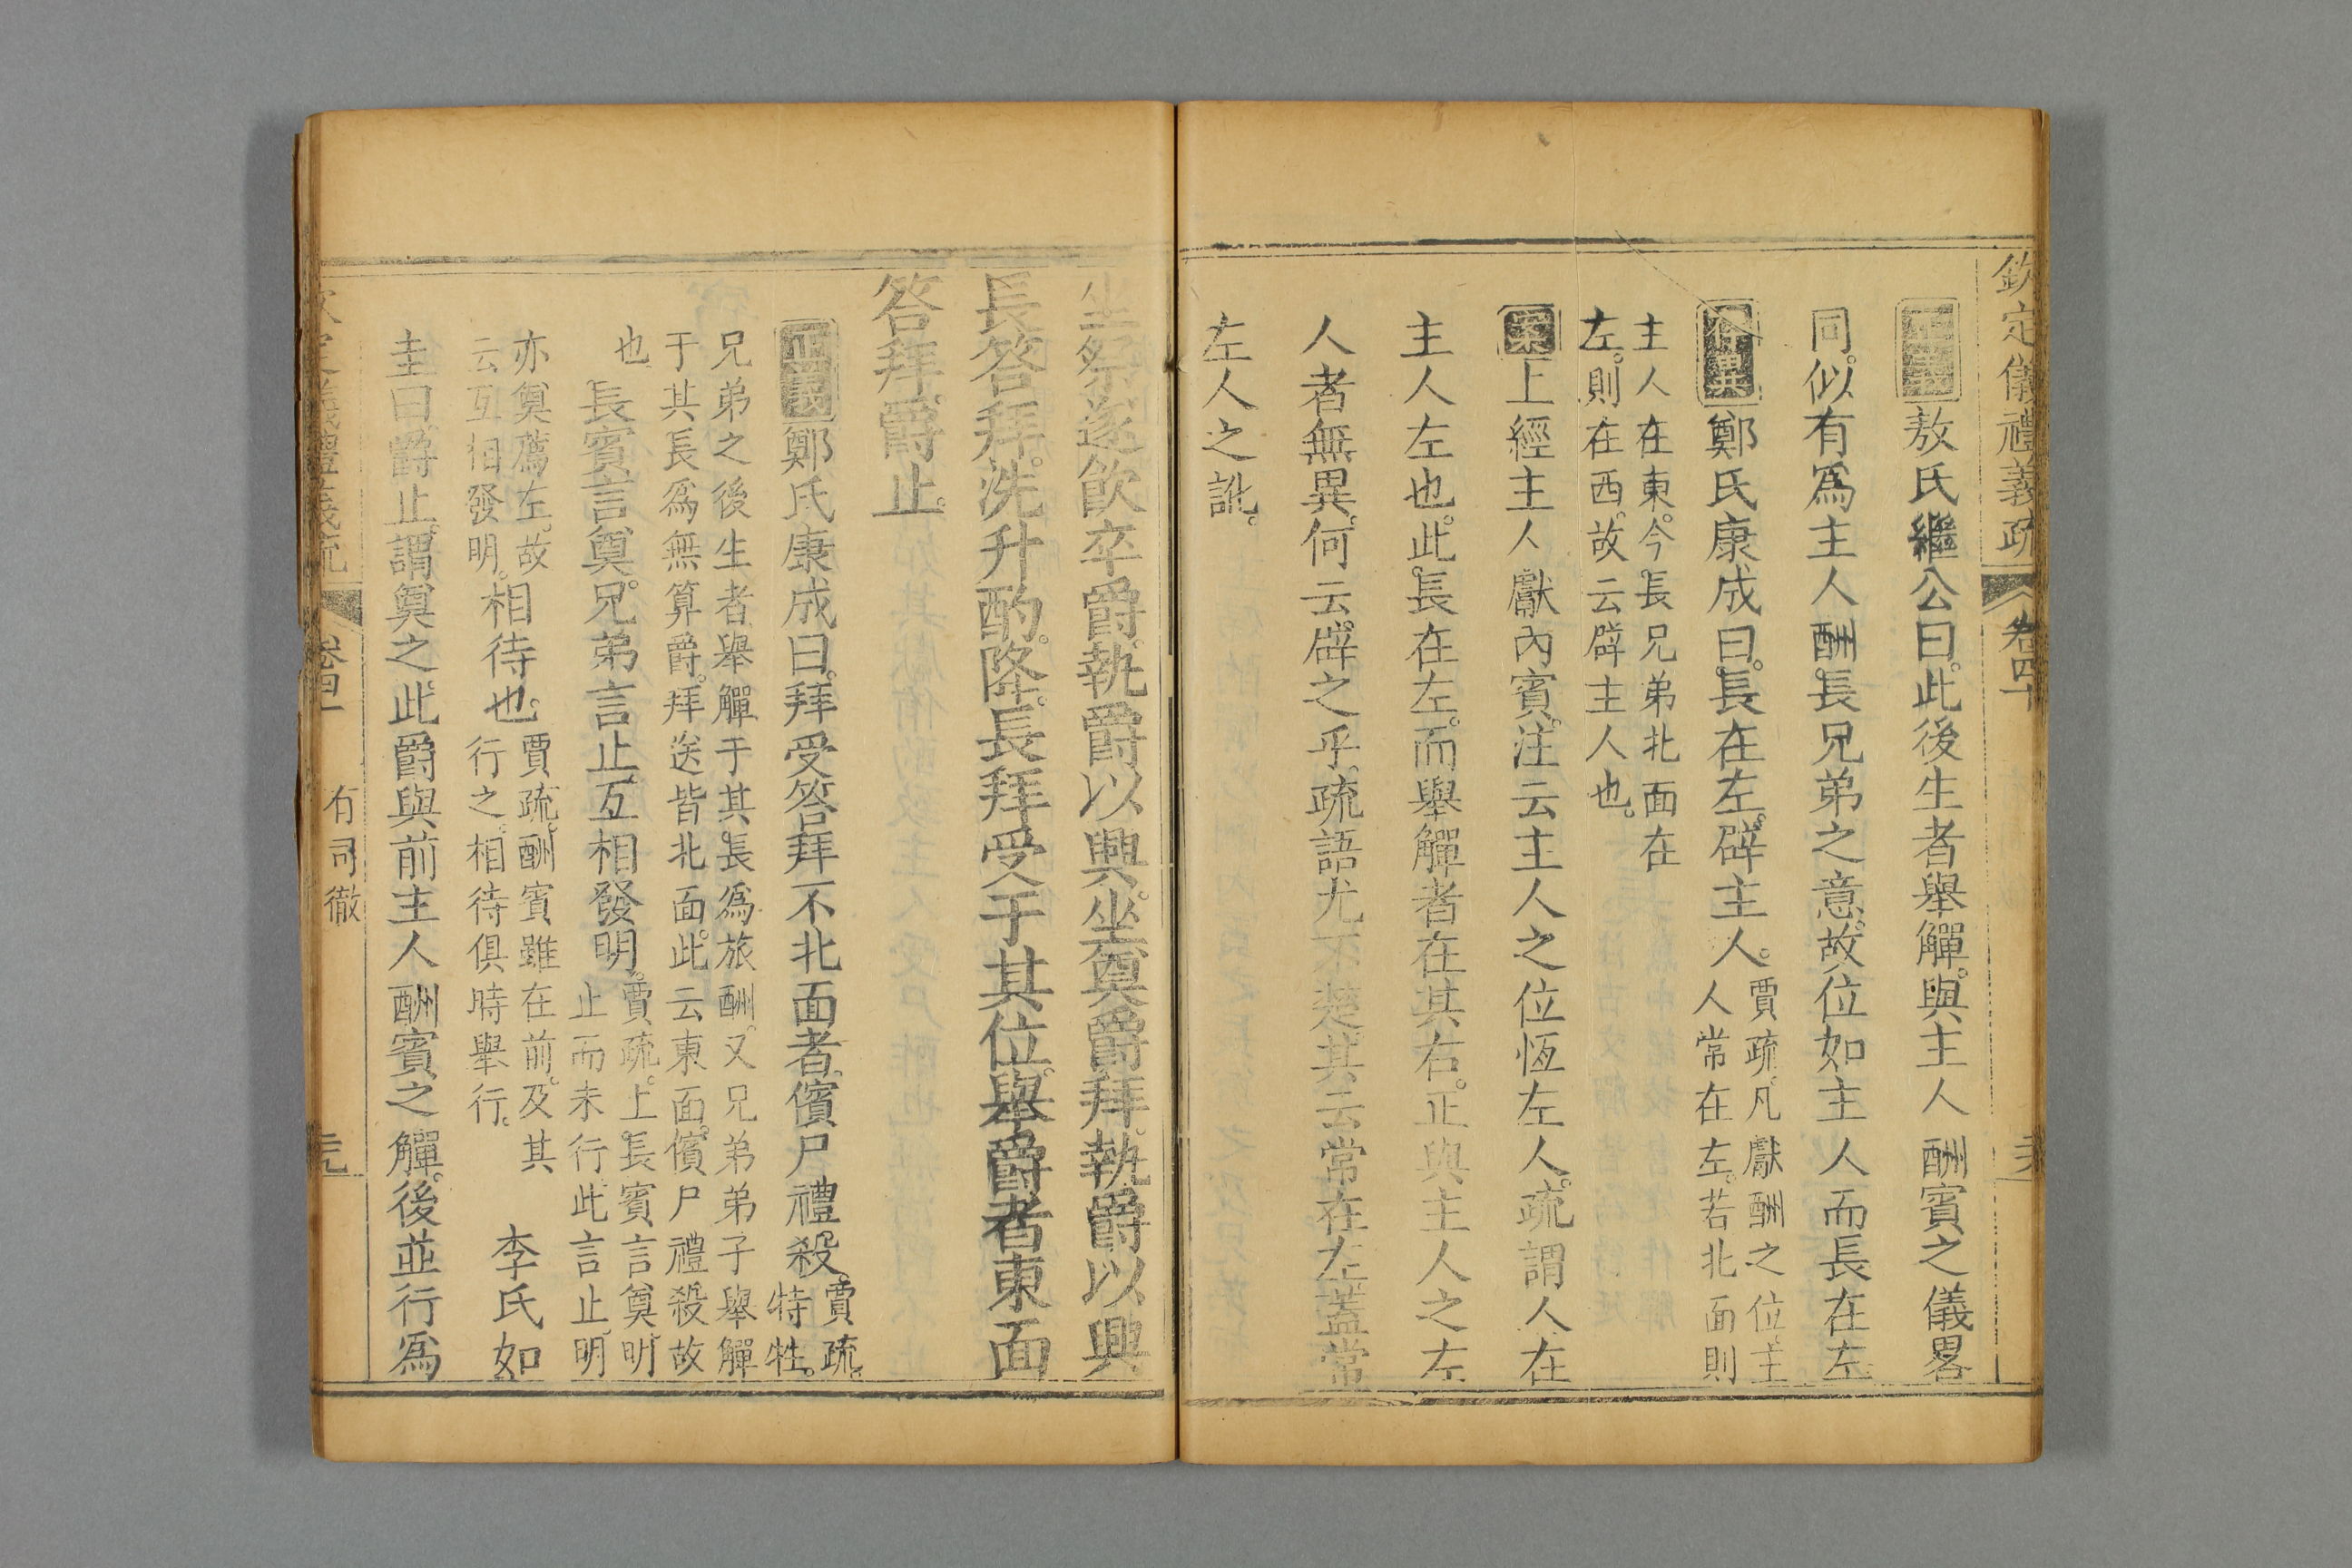 欽定儀禮義疏 卷四十
正義敖氏繼公曰。此後生者舉觶。與主人酬賓之儀畧
同。似有爲主人酬長兄弟之意。故位如主人而長在左
存異鄭氏康成曰。長在左。辟主人。賈疏。凡獻酬之位。主
人常在左。若北面則
主人在東。今長兄弟北面在
左。則在西。故云辟主人也。
案上經主人獻內賓。注云主人之位恆左人。疏謂人在
主人左也。此長在左。而舉觶者在其右。正與主人之左
人者無異。何云辟之乎。疏語尤不楚。其云常在左。蓋常
左人之訛。
坐祭遂飲卒爵。執爵以興。坐奠爵拜。執爵以興
長答拜。洗升酌。降。長拜受于其位。舉爵者東面
答拜。爵止。
正義鄭氏康成曰。拜受答拜不北面者。儐尸禮殺。賈疏。
特牲。
兄弟之後生者舉觶于其長爲旅酬。又兄弟弟子舉觶
于其長爲無算爵。拜送皆北面。此云東面。儐尸禮殺故
也 長賓言奠。兄弟言止。互相發明。賈疏。上長賓言奠。明
止而未行。此言止。明
亦奠薦左。故
云互相發明。相待也。賈疏。酬賓雖在前。及其
行之。相待俱時舉行。 李氏如
圭曰。爵止。謂奠之。此爵與前主人酬賓之觶。後並行爲
欽定儀禮義疏 卷四十 有司徹 三九